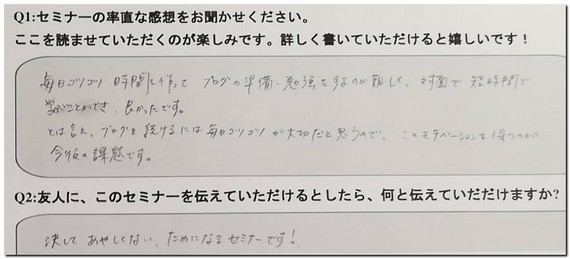 Q1:セミナーの率直な感想をお聞かせください。
ここを読ませていただくのが楽しみです。詳しく書いていただけると嬉しいです！
毎日コツコツ 時間を作って ブログの準備・勉強をするのが難しく、対面で 短時間で
学ぶことができ、良かったです。
とは言え、ブログを 続けるには 毎日コツコツ が大切だと思うので、このモチベーションを 保つのが
今後の課題です。
Q2:友人に、このセミナーを伝えていただけるとしたら、何と伝えていだだけますか?
決して あやしくない、ためになる セミナーです！